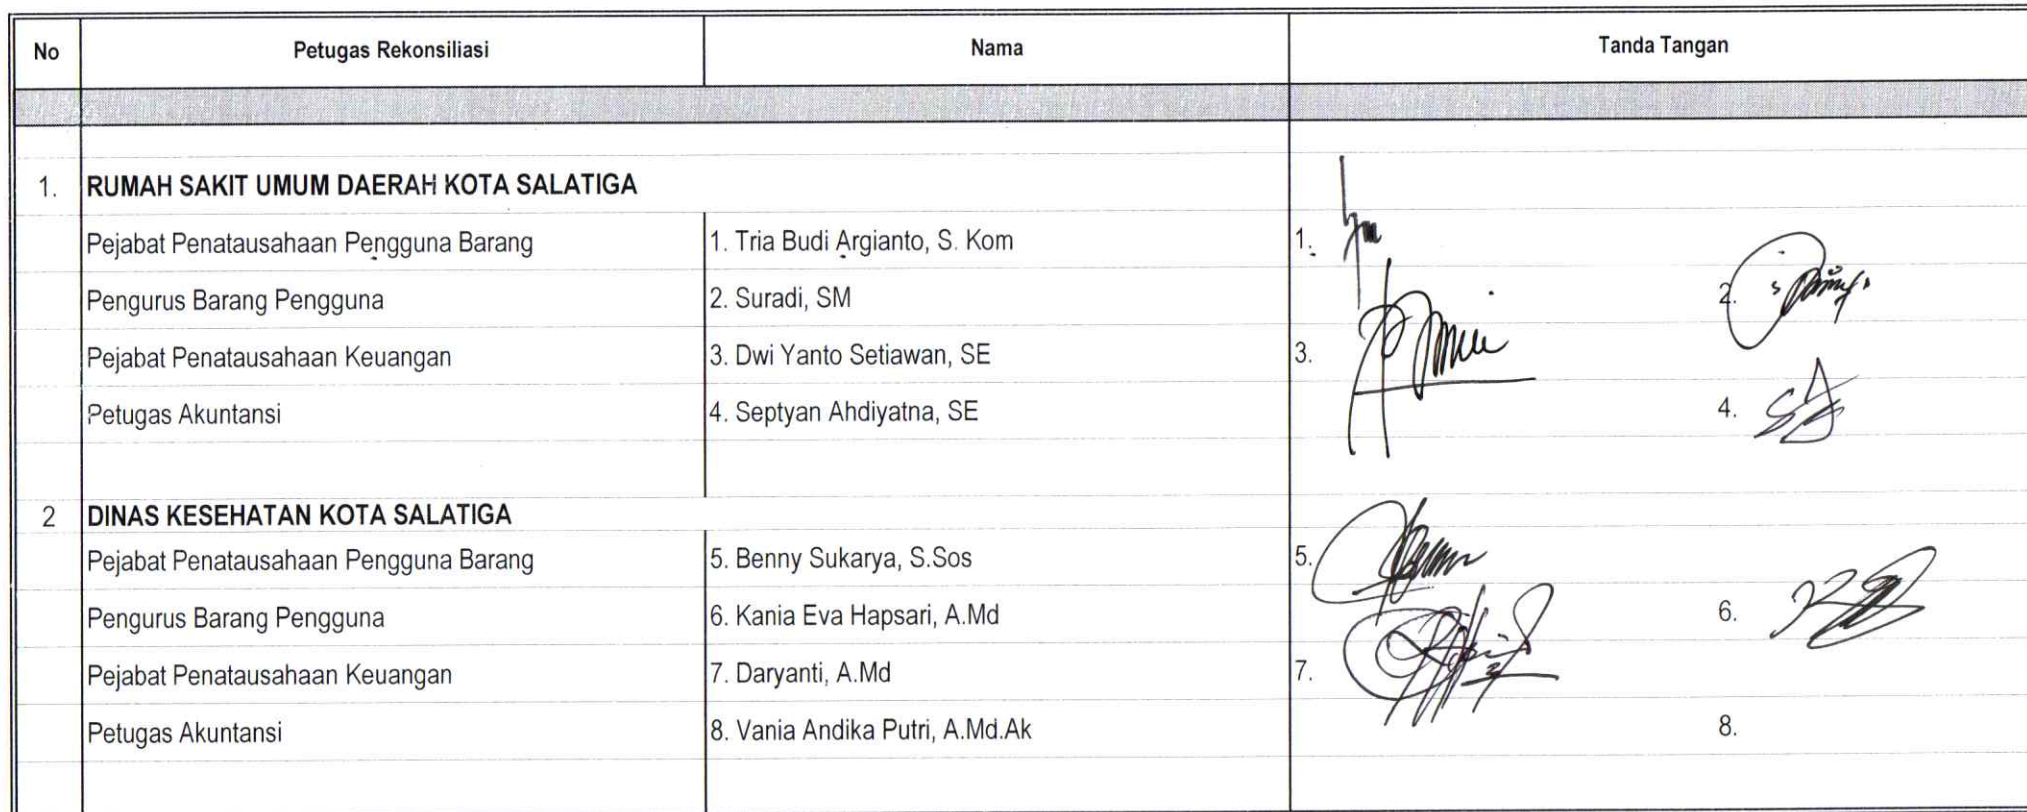 No Petugas Rekonsiliasi Nama Tanda Tangan
1. RUMAH SAKIT UMUM DAERAH KOTA SALATIGA
Pejabat Penatausahaan Pengguna Barang 1. Tria Budi Argianto, S. Kom 1.
Pengurus Barang Pengguna 2. Suradi, SM 2.
Pejabat Penatausahaan Keuangan 3. Dwi Yanto Setiawan, SE 3.
Petugas Akuntansi 4. Septyan Ahdiyatna, SE 4.
2 DINAS KESEHATAN KOTA SALATIGA
Pejabat Penatausahaan Pengguna Barang 5. Benny Sukarya, S.Sos 5.
Pengurus Barang Pengguna 6. Kania Eva Hapsari, A.Md 6.
Pejabat Penatausahaan Keuangan 7. Daryanti, A.Md 7.
Petugas Akuntansi 8. Vania Andika Putri, A.Md.Ak 8.